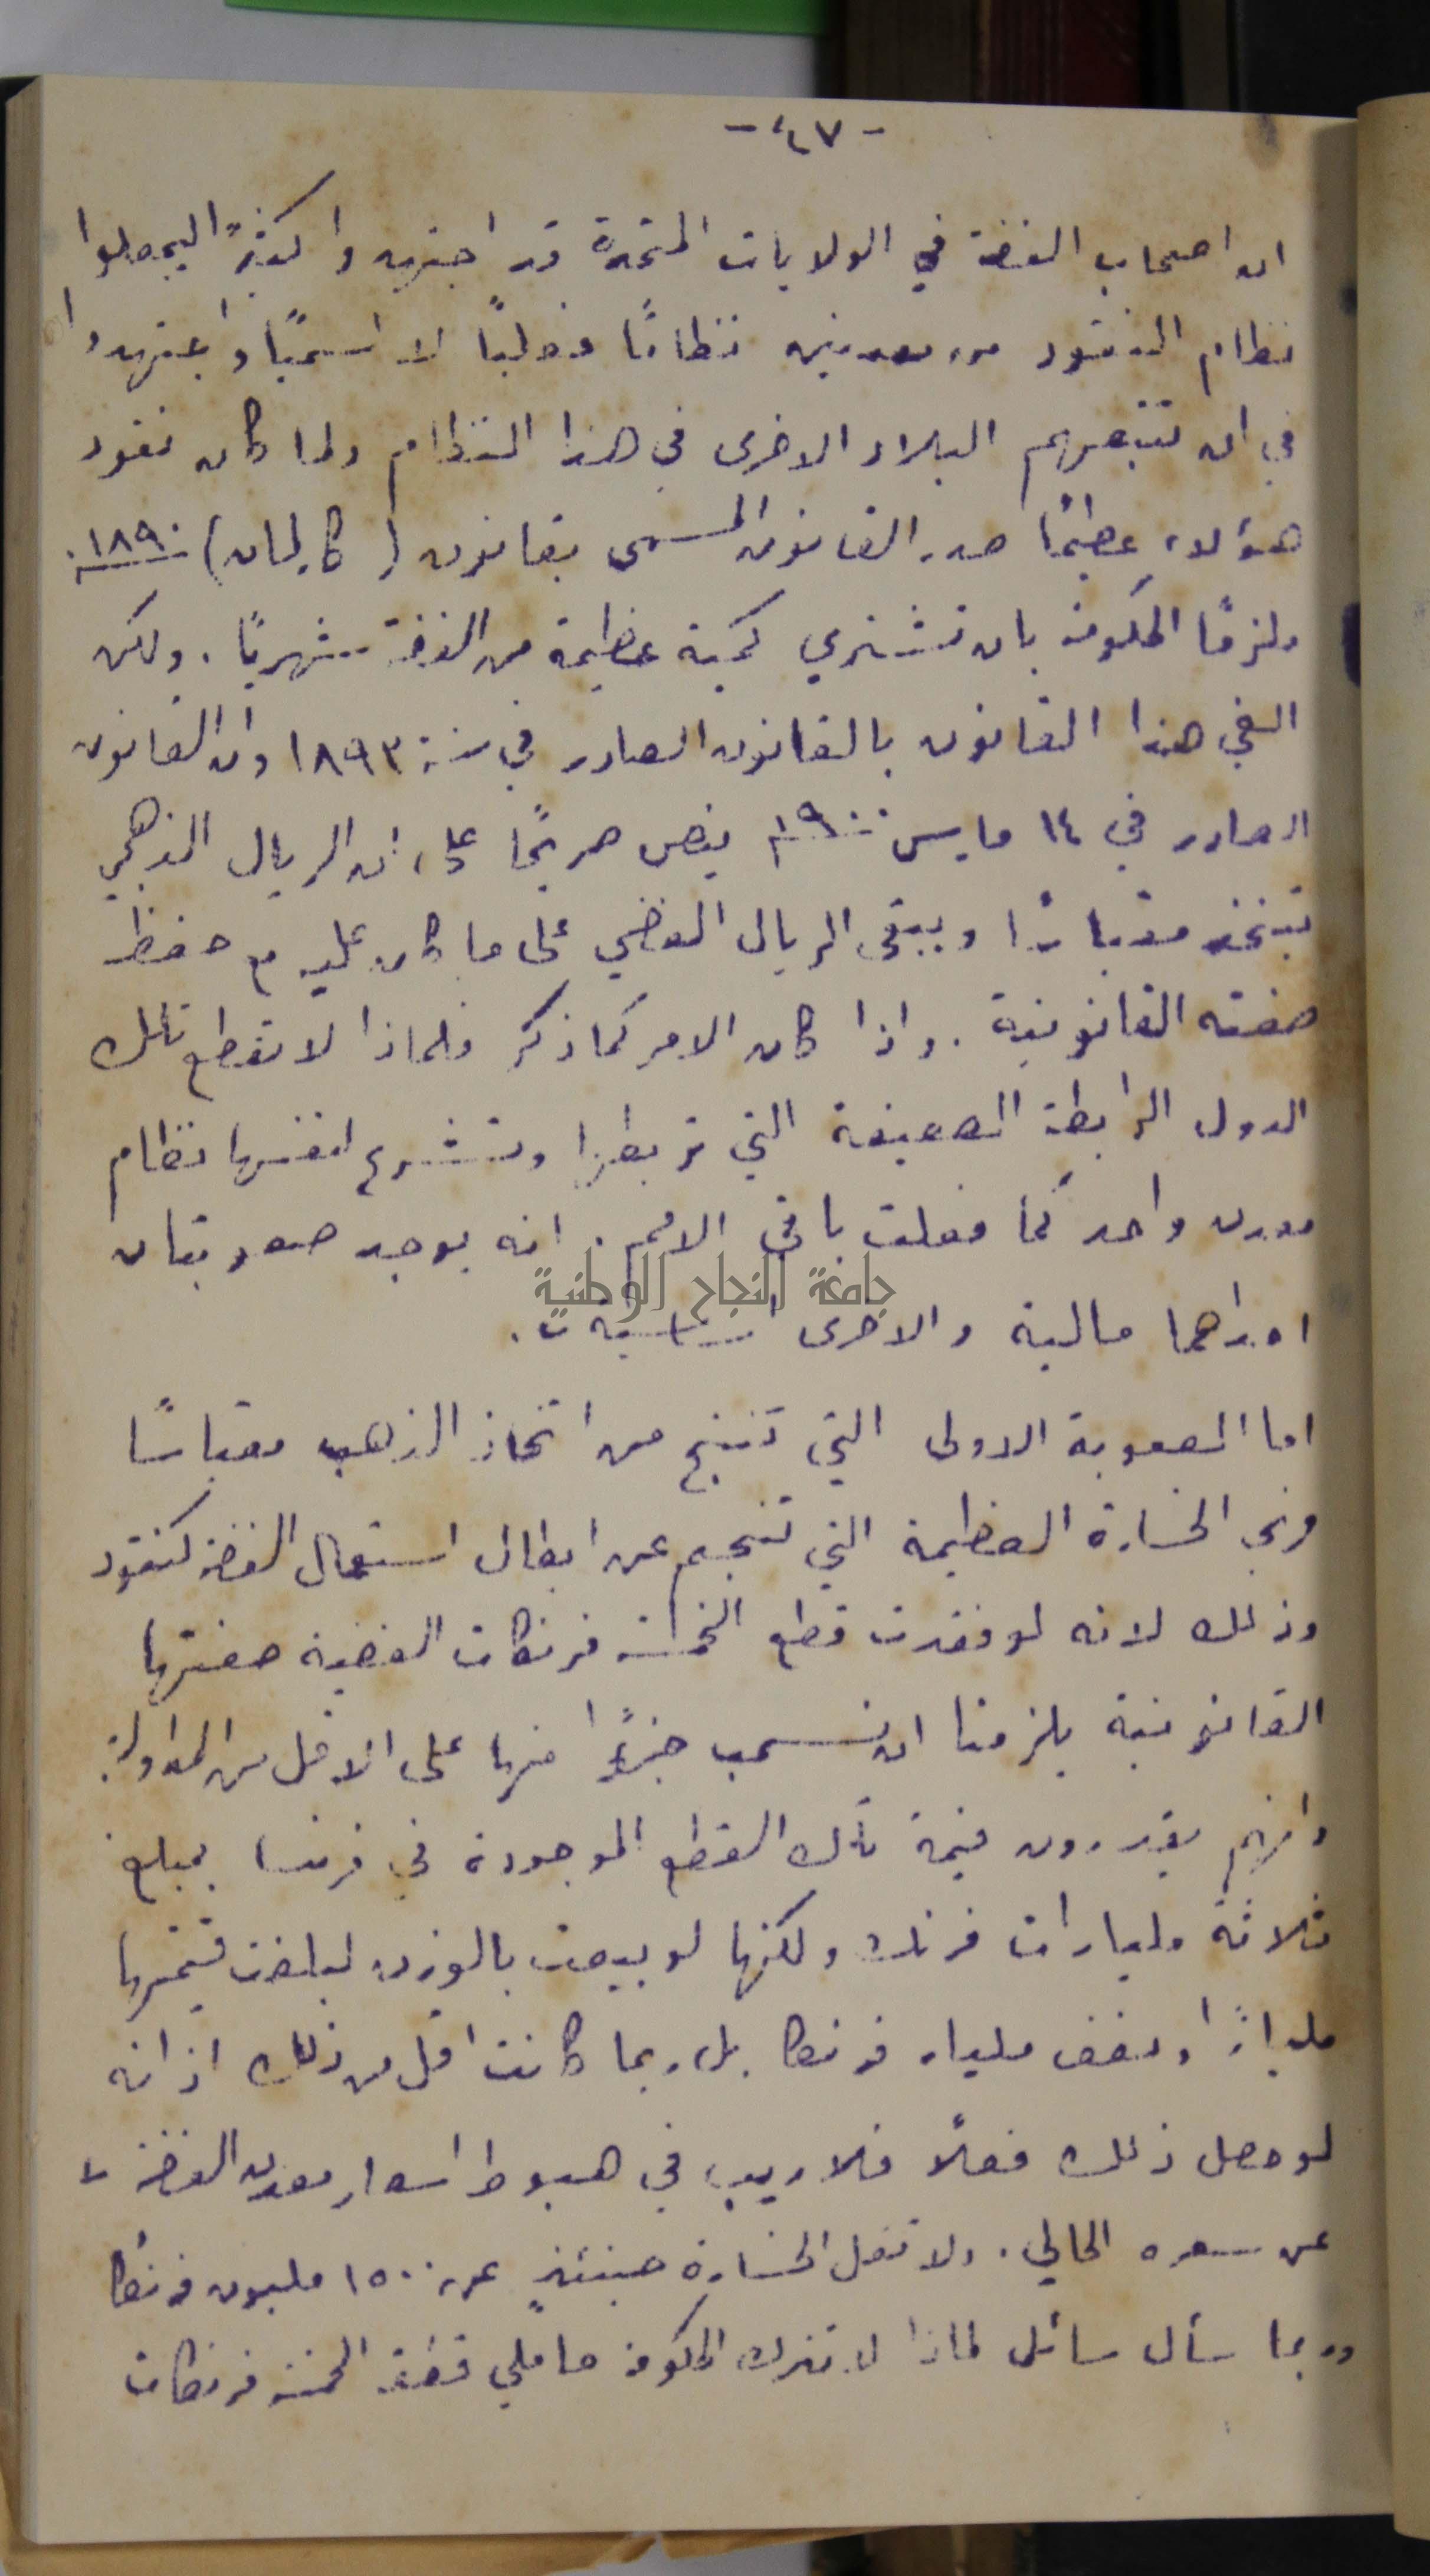 - ٤٧ -
ان اصحاب الفضة في الولايات المتحدة قد اجتهدوا كثيرًا ليجعلوا
نظام النقود من معدنين نظامًا فعليًا لا اسميًا واجتهدوا
في ان تتبعهم البلاد الاخرى في هذا النظام ولما كان نفوذ
هؤلاء عظيمًا صدر القانون المسمى بقانون ( ) ١٨٩٠.
ملزمًا الحكومة بان تشتري كمية عظيمة من الفضة شهريًا . ولكن
الغي هذا القانون بالقانون الصادر في سنة ١٨٩٣ وان القانون
الصادر في ١٤ مايس ١٩٠٠ ينص صريحًا على ان الريال الذهبي
يتخذ مقياسًا ويبقى الريال الفضي على ما كان عليه مع حفظ
صفته القانونية . واذا كان الامر كما ذكر فلماذا لا تقطع تلك
الدول الرابطة الضعيفة التي تربطها وتشرع لنفسها نظام
معدن واحد كما فعلت باقي الامم . انه يوجد صعوبتان
احداهما مالية والاخرى
جامعة النجاح الوطنية
اما الصعوبة الاولى التي تنتج من اتخاذ الذهب مقياسًا
فهي الخسارة العظيمة التي تنجم عن ابطال استعمال الفضة كنقود
وذلك لانه لو فقدت قطع الخمسة فرنكات الفضية صفتها
القانونية يلزمنا ان نسحب جزءًا منها على الاقل من المداولة
وانهم يقدرون قيمة تلك القطع الموجودة في فرنسا بمبلغ
ثلاثة مليارات فرنك ولكنها لو بيعت بالوزن لبلغت قيمتها
مليارًا ونصف مليار فرنكا بل ربما كانت اقل من ذلك اذ انه
لو حصل ذلك فعلًا فلا ريب في هبوط اسعار معدن الفضة
عن سعره الحالي . ولا تقل الخسارة حينئذٍ عن ١٥٠٠ مليون فرنكًا
وربما سأل سائل لماذا لا تترك الحكومة حاملي قطعة الخمسة فرنكات